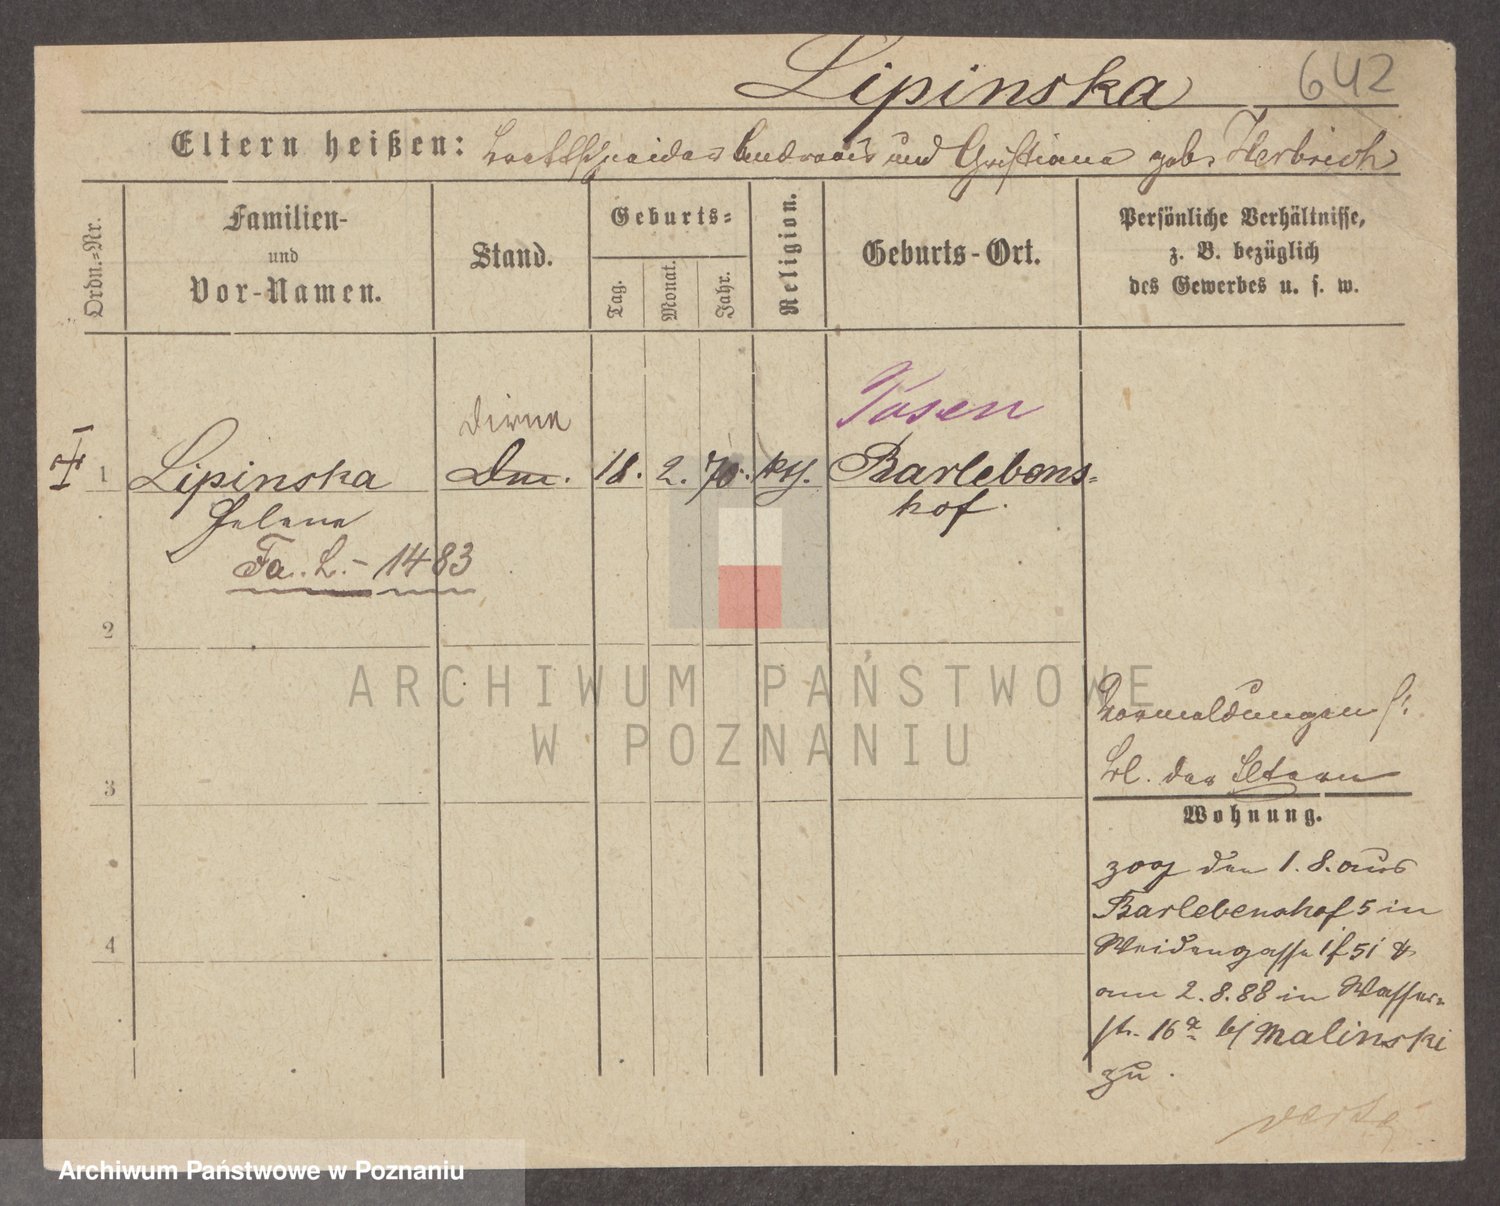 Lipinska
642
Eltern heißen: Brettschneider Andreas und Christiana geb. Herbrich
Ordn.-Nr.
Familien-
und
Vor-Namen.
Stand.
Geburts-
Tag.
Monat.
Jahr.
Religion.
Geburts-Ort.
Persönliche Verhältnisse,
z. B. bezüglich
des Gewerbes u. s. w.
Posen
Dirne
1 Lipinska Dm. 18. 2. 70. kth. Barlebens-
Helene hof.
Fa. L. - 1483
2
ARCHIWUM PAŃSTWOWE
W POZNANIU
Vormeldungen s.
Bl. der Eltern
3
Wohnung.
zog den 1. 8. aus
Barlebenshof 5 in
4
Weidengasse 51 &
am 2. 8. 88 in Wasser-
str. 16a b/ Malinski
zu.
Archiwum Państwowe w Poznaniu